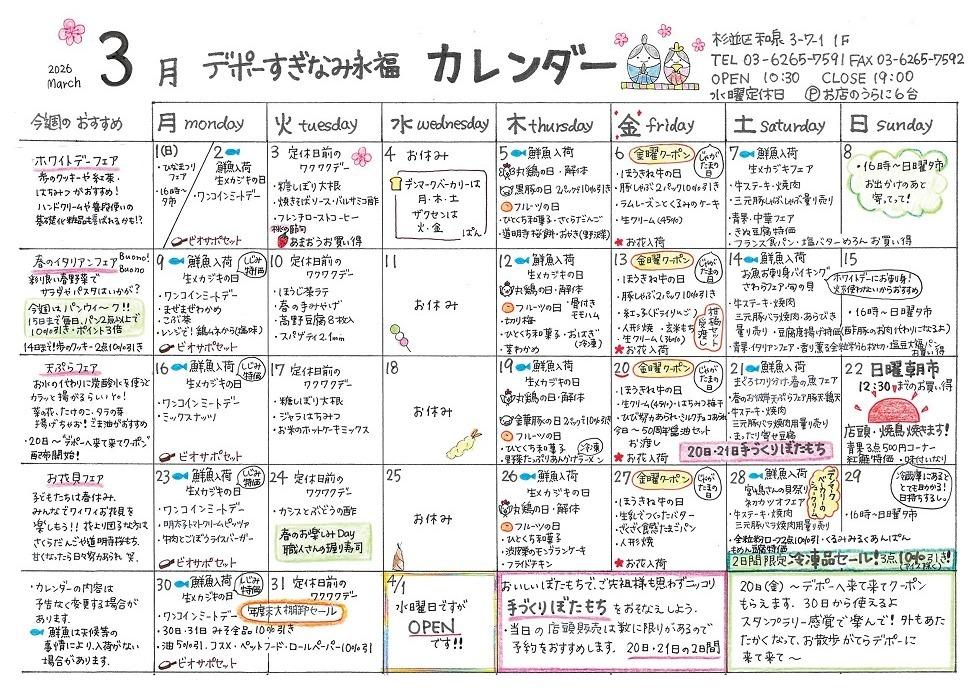 2026
March
3月 デポーすぎなみ永福 カレンダー
杉並区和泉3-7-1 1F
TEL 03-6265-7591 FAX 03-6265-7592
OPEN 10:30 CLOSE 19:00
水曜定休日 Ⓟお店のうらに6台
今週のおすすめ
月 monday
火 tuesday
水 wednesday
木 thursday
金 friday
土 saturday
日 sunday
ホワイトデーフェア
歩のクッキーや紅茶・
はちみつがおすすめ!
ハンドクリームや普段使いの
基礎化粧品も喜ばれるかも!?
1(日)
・ひなまつりフェア
・16時~夕市
2 鮮魚入荷
生メカジキの日
・ワンコインミートデー
ビオサポセット
3 定休日前の
ワクワクデー
・糖しぼり大根
・焼きそばソース・バルサミコ酢
・フレンチローストコーヒー
桃の節句
あまおうお買い得
4 お休み
デンマークベーカリーは
月・木・土
ザクセンは
火・金
ぱん
5 鮮魚入荷
丸鶏の日・解体
黒豚の日 2パック10%引き
フルーツの日
・ひとくち和菓子・さくらだんご
・道明寺桜餅・おかき(野沢菜)
6 金曜クーポン
じゃがたまの日
・ほうきね牛の日
・豚しゃぶ2パック10%引き
・ラムレーズンとくるみのケーキ
・生クリーム(45%)
お花入荷
7 鮮魚入荷
・生メカジキフェア
・牛ステーキ・焼肉
・三元豚しゃぶしゃぶ量り売り
・青果・中華フェア
・きぬ豆腐特価
・フランス食パン・塩バターめろんお買い得
8
・16時~日曜夕市
お出かけのあと
寄ってって!
春のイタリアンフェア
Buono! Buono
彩り良い春野菜で
サラダやパスタはいかが?
今週はパンウィ~ク!!
15日まで毎日、パン2点以上で
10%引き・ポイント3倍
14日まで!歩のクッキー2点10%引き
9 鮮魚入荷
しじみ特価
生メカジキの日
・ワンコインミートデー
・まぜまぜわかめ
・こぶ茶
・レンジで!鶏ムネから(塩味)
ビオサポセット
10 定休日前の
ワクワクデー
・ほうじ茶ラテ
・春の手みやげ
・高野豆腐8枚入
・スパゲティ2.1mm
11
お休み
12 鮮魚入荷
・生メカジキの日
丸鶏の日・解体
フルーツの日・骨付きモモハム
・切り梅
・ひとくち和菓子・おはぎ(冷凍)
・茎わかめ
13 金曜クーポン
じゃがたまの日
・ほうきね牛の日
・豚しゃぶ2パック10%引き
・人形焼・玄米もち
・生クリーム(36%)
お花入荷
14 鮮魚入荷
・お魚お刺身バイキング
・さわらフェア・旬の貝
・牛ステーキ・焼肉
15
ホワイトデーにお刺身!
・16時~日曜夕市
天ぷらフェア
お水の代わりに炭酸水を使うと
カラッと揚がるらしいYO!
菜の花、たけのこ、タラの芽
揚げちゃお!ごま油がおすすめ
・20日~"デポーへ来て来てクーポン"
配布開始!
16 鮮魚入荷
しじみ特価
生メカジキの日
・ワンコインミートデー
・ミックスナッツ
ビオサポセット
17 定休日前の
ワクワクデー
・糖しぼり大根
・ジャラはちみつ
・お米のホットケーキミックス
18
お休み
19 鮮魚入荷
・生メカジキの日
丸鶏の日・解体
フルーツの日
・ひとくち和菓子(冷凍)
・野菜たっぷりあんかけラーメン
20 金曜クーポン
じゃがたまの日
・ほうきね牛の日
・生クリーム(45%)・はちみつ梅干
今日~50周年醤油セット
お渡し
お花入荷
20日・21日手づくりぼたもち
21 鮮魚入荷
・まぐろ切り分け・春の魚フェア
・牛ステーキ・焼肉
・三元豚バラ焼肉用量り売り
・まったり寄せ豆腐
22 日曜朝市
12:30までのお買い得
店頭・焼鳥焼きます!
青果3点500円コーナー
紅鮭特価・味付いなり
お花見フェア
子どもたちは春休み。
みんなでワイワイお花見を
楽しもう!!花より団子な方も
さくらだんごや道明寺桜もち、
甘くなったら日々努あられ 笑
23 鮮魚入荷
しじみ特価
生メカジキの日
・ワンコインミートデー
・明太子トマトクリームピッツァ
・牛肉とごぼうライスバーガー
ビオサポセット
24 定休日前の
ワクワクデー
・カシスとぶどうの酢
春のお楽しみDay
職人さんの握り寿司
25
お休み
26 鮮魚入荷
・生メカジキの日
丸鶏の日・解体
フルーツの日
・ひとくち和菓子
・渋皮栗のモンブランケーキ
・フライドチキン
27 金曜クーポン
じゃがたまの日
・ほうきね牛の日
・生乳でつくったバター
・ざくざく食感たまごパン
・人形焼
お花入荷
28 鮮魚入荷
・宮嶋さんの貝祭り
・ネコカツオフェア
・牛ステーキ・焼肉
三元豚バラ焼肉用量り売り
もめん豆腐特価
2日間限定 冷凍品セール!3点10%引き!
29
冷蔵庫にあると
とても助かる!
日持ちするし。
・16時~日曜夕市
・カレンダーの内容は
予告なく変更する場合が
あります。
・鮮魚は天候等の
事情により入荷がない
場合があります。
30 鮮魚入荷
しじみ特価
生メカジキの日
・ワンコインミートデー
・30日・31日みそ全品10%引き
・油5%引、コスメ・ペットフード・ロールペーパー10%引
ビオサポセット
31 定休日前の
ワクワクデー
年度末大棚卸セール
4/1
水曜日ですが
OPEN
です!!
おいしいぼたもちで、ご先祖様も思わずニッコリ
手づくりぼたもちをおそなえしよう。
・当日の店頭販売は数に限りがあるので
予約をおすすめします。20日・21日の2日間
20日(金)~デポーへ来て来てクーポン
もらえます。30日から使えるよ
スタンプラリー感覚で楽んで!外もあた
たかくなって、お散歩がてらデポーに
来て来て~